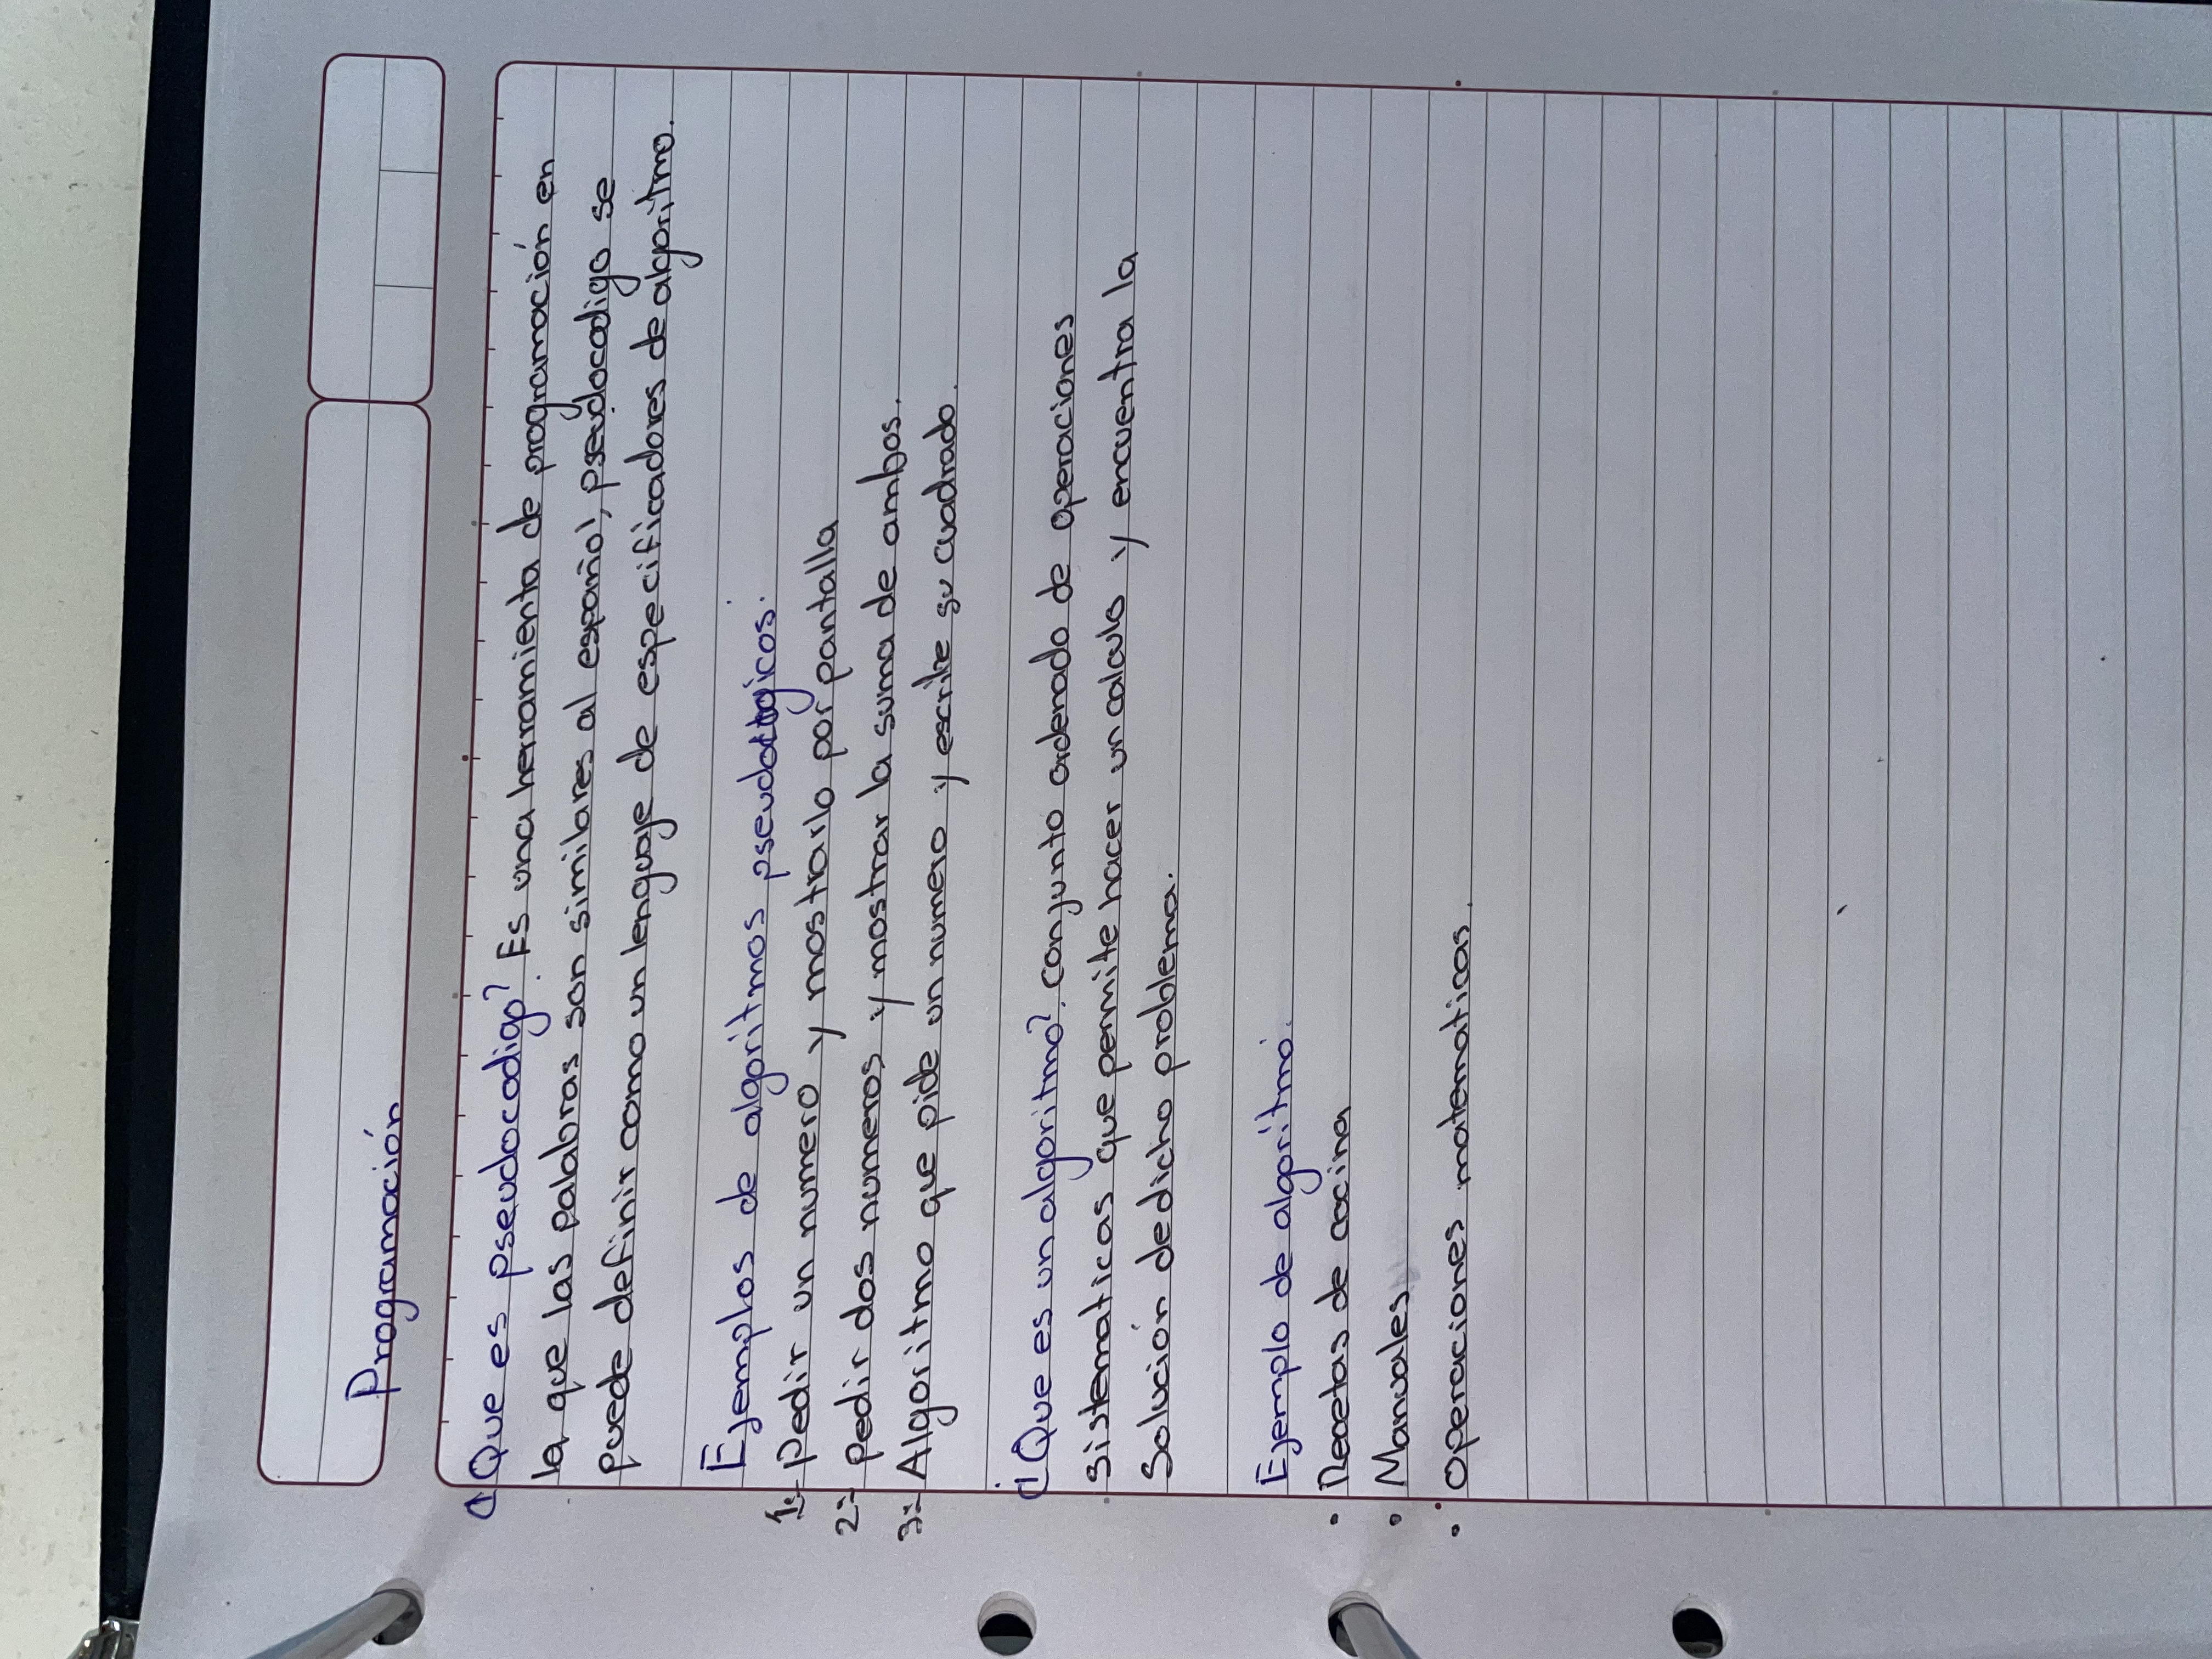 Programación
¿Que es pseudocodigo? Es una herramienta de programación en
la que las palabras son similares al español, pseudocodigo se
puede definir como un lenguaje de especificadores de algoritmo.
Ejemplos de algoritmos
1:- Pedir un numero y mostrarlo por pantalla
2:- Pedir dos numeros y mostrar la suma de ambos.
3:- Algoritmo que pide un numero y escribe su cuadrado.
¿Que es un algoritmo? conjunto ordenado de operaciones
sistematicas que permite hacer un calculo y encuentra la
Solución de dicho problema.
Ejemplo de algoritmo.
• Recetas de cocina
• Manuales
• Operaciones matematicas.